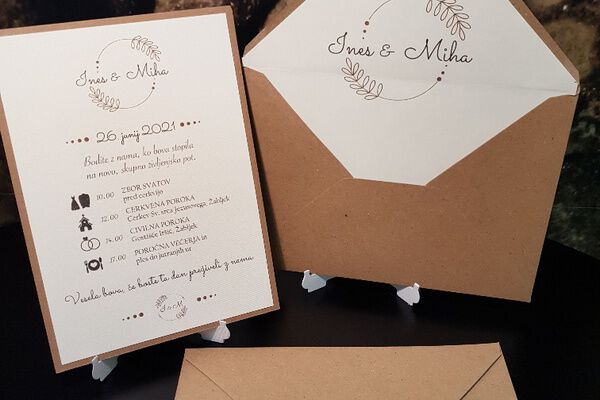 Ines & Miha
26. junij 2021
Bodite z nama, ko bova stopila
na novo, skupno življenjsko pot.
10.00 ZBOR SVATOV
pred cerkvijo
12.00 CERKVENA POROKA
Cerkev Sv. srca Jezusovega, Žabljek
14.00 CIVILNA POROKA
Gostišče Žabljek
17.00 POROČNA VEČERJA in
ples do jutranjih ur
Vesela bova, če boste ta dan preživeli z nama
I & M
Ines & Miha